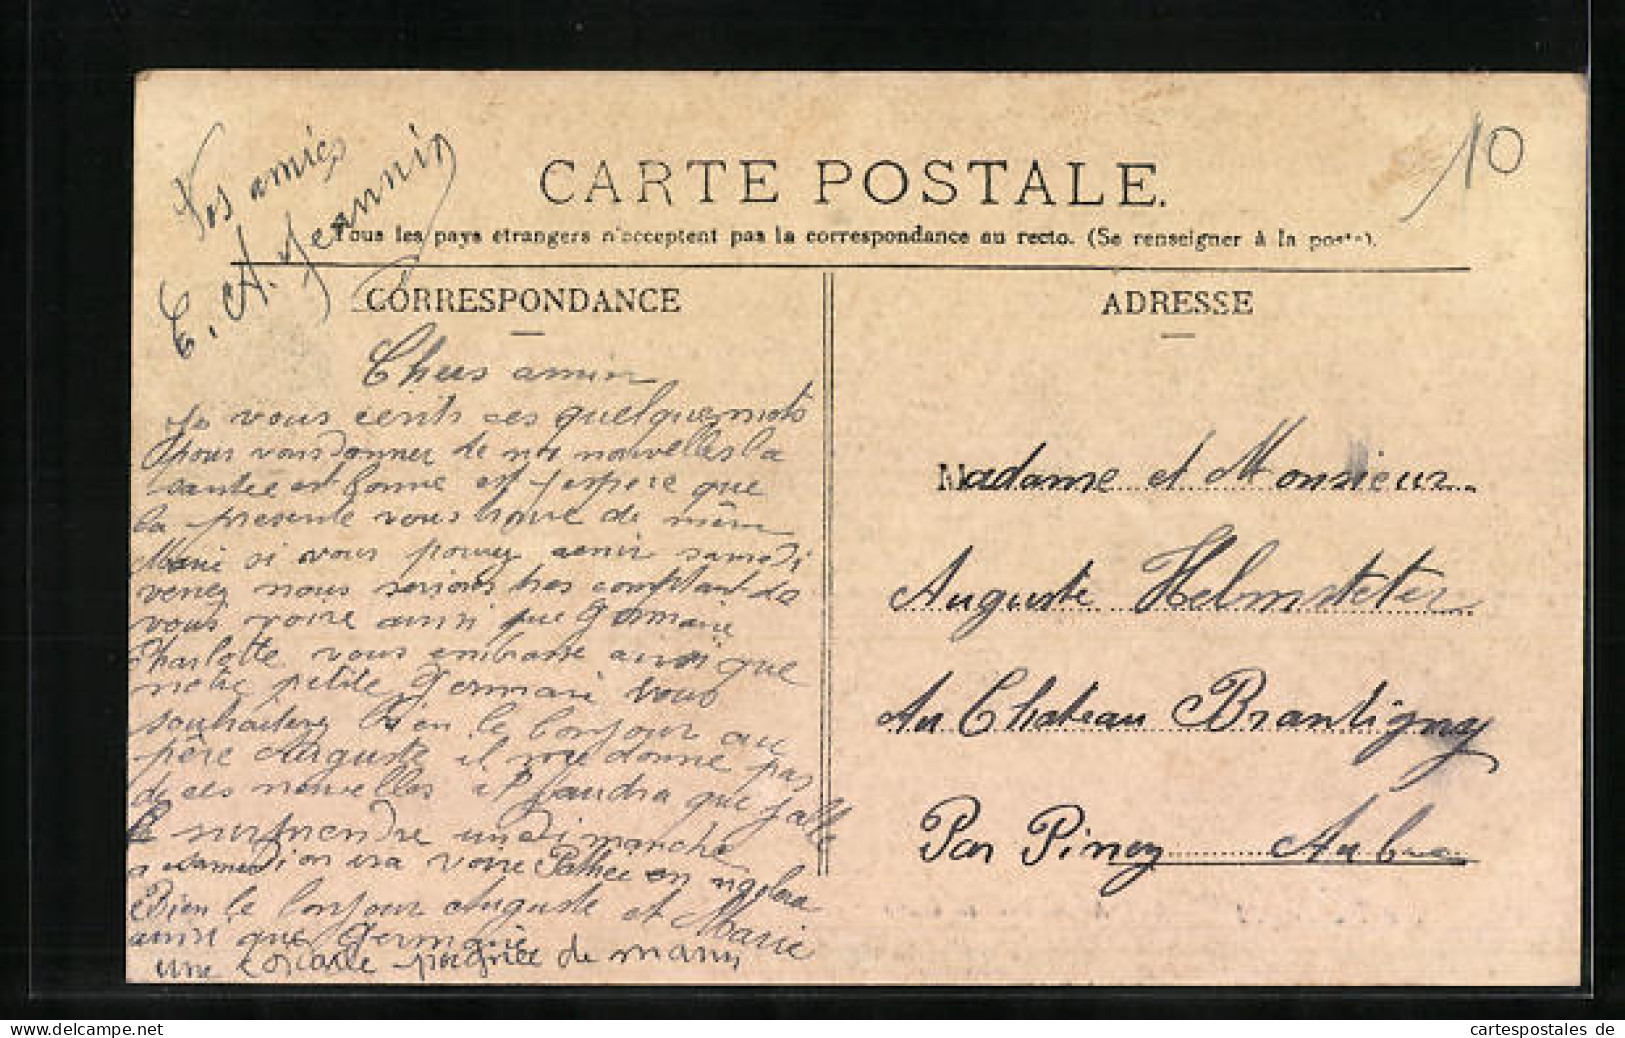 Vos amis
E. A. Jeannin
10
CARTE POSTALE.
Tous les pays étrangers n'acceptent pas la correspondance au recto. (Se renseigner à la poste).
CORRESPONDANCE
ADRESSE
Chers amin
Je vous cerits ces quelque mots
pour vous donner de nos nouvelles la
santée est bonne et jespere que
la presente vous trouve de mêm
Marie si vous pouvez venir samedi
venez nous serions tres comptant de
vous voire ainsi que Germaine
Charlotte vous embrasse ainsi que
notre petite Germain vous
souhaitens bien le bonjour au
père Auguste il nous donne pas
de ces nouvelles il faudra que jalle
le surprendre un dimanche
samedi on ira voire Pathee on rigolera
Bien le bonjour Auguste et Marie
ainsi que Germaine
une poignée de main
Madame et Monsieur
Auguste Helmsteter
Au Chateau Brantigny
Par Piney Aube
www.delcampe.net
cartespostales de